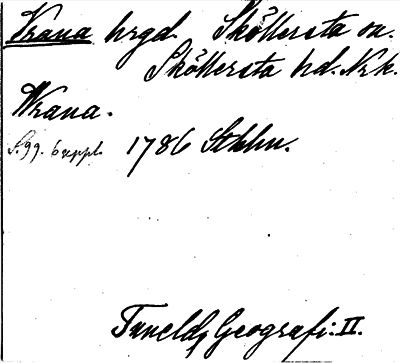 Vrana hrgd. Sköllersta sn.
Sköllersta hd. Nrk.
Wrana.
S. 99. 6 uppl. 1786 Sthlm.
Tunelds Geografi. II.